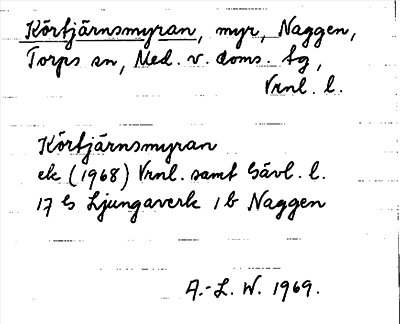 Körtjärnsmyran, myr, Naggen,
Torps sn, Med. v. doms. tg,
Vrnl. l.
Körtjärnsmyran
ek (1968) Vrnl. samt Gävl. l.
17 G Ljungaverk 1 b Naggen
A.-L. W. 1969.